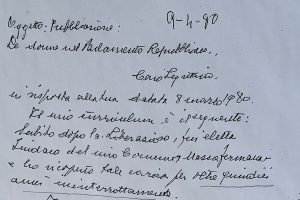 9-4-80
Oggetto: Pubblicazione:
Le donne nel Parlamento Repubblicano,
Caro Segretario
in risposta alla tua datata 8 marzo 1980.
Il mio curriculum è il seguente:
Subito dopo la Liberazione, fui eletta
Sindaco del mio Comune Massa Fermana
e ho ricoperto tale carica per oltre quindici
anni ininterrottamente.